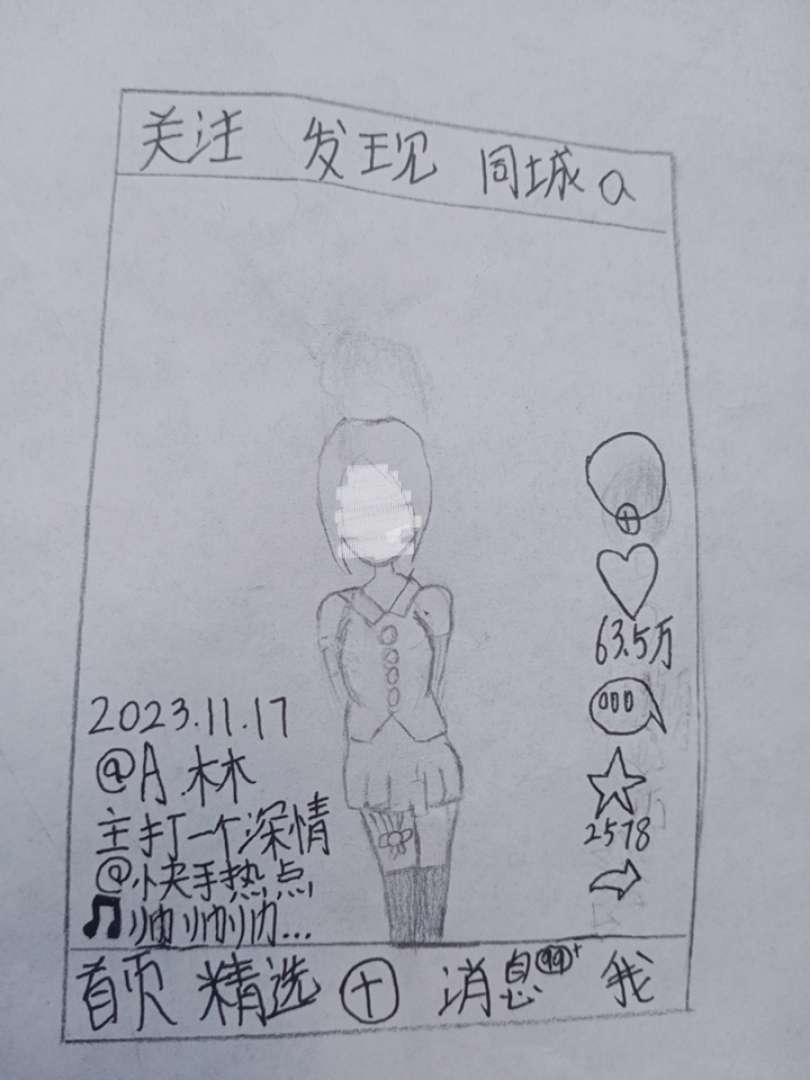 关注 发现 同城
63.5万
2023.11.17
@A.林
主打一个深情
2578
@快手热点
帅帅帅...
首页 精选 消息 99+ 我